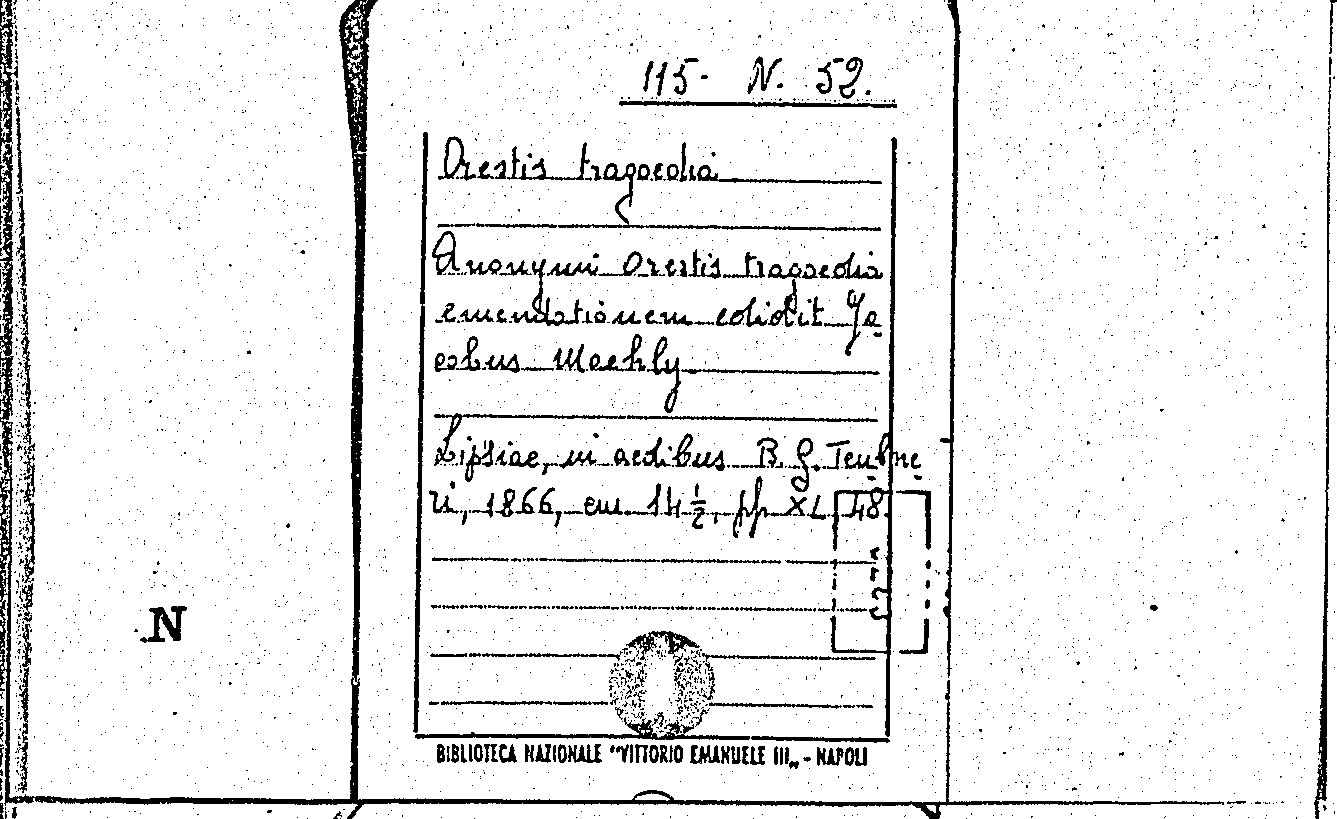 115- N. 52.
Orestis tragoedia
Anonymi Orestis tragoedia
emendationem edidit Ja
cobus Maehly.
Lipsiae, in aedibus B. G. Teubne
ri, 1866, cm. 14 1/2, pp XL, 48.
N
BIBLIOTECA NAZIONALE "VITTORIO EMANUELE III„ - NAPOLI